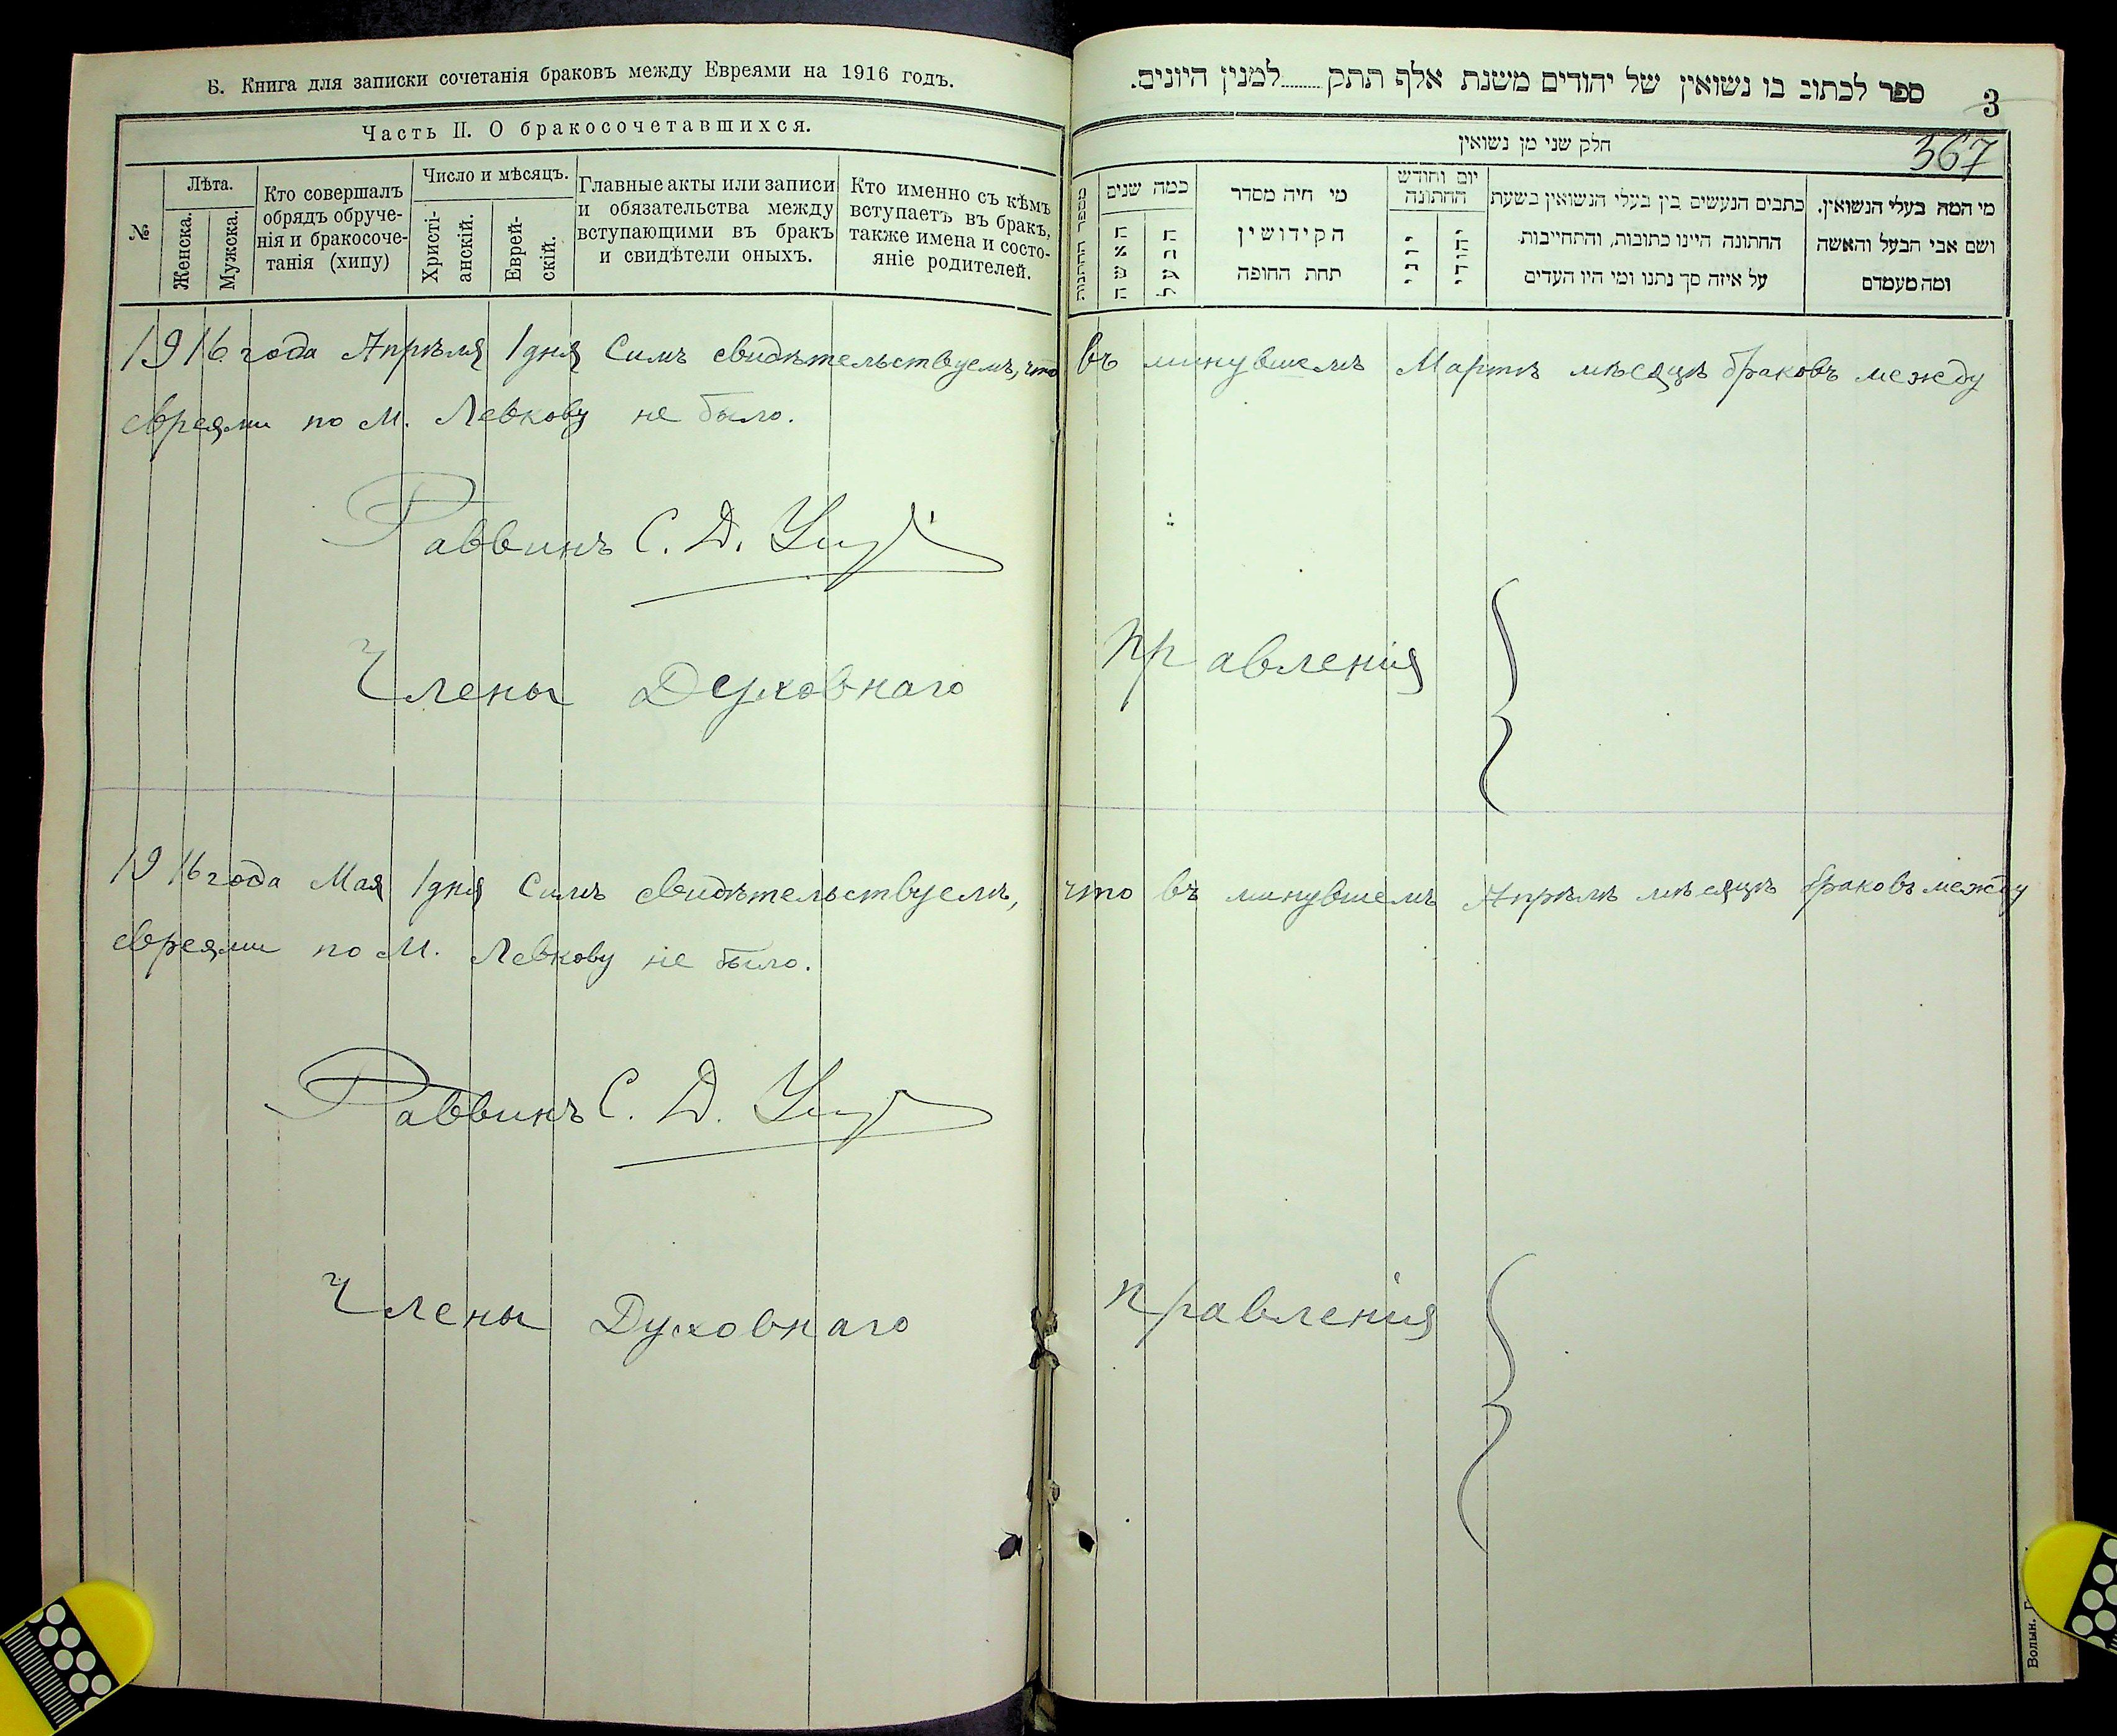 Б. Книга для записки сочетанія браковъ между Евреями на 1916 годъ.
Часть II. О бракосочетавшихся.
№
Лѣта.
Женска.
Мужска.
Кто совершалъ
обрядъ обруче-
нія и бракосоче-
танія (хипу)
Число и мѣсяцъ.
Христі-
анскій.
Еврей-
скій.
Главные акты или записи
и обязательства между
вступающими въ бракъ
и свидѣтели оныхъ.
Кто именно съ кѣмъ
вступаетъ въ бракъ,
также имена и состо-
яніе родителей.
ספר לכתוב בו נשואין של יהודים משנת אלף תתק........למנין היונים.
3
367
חלק שני מן נשואין
מספר החתונות
כמה שנים
האשה
הבעל
מי היה מסדר
הקידושין
תחת החופה
יום וחודש
החתונה
יוני
יהודי
כתבים הנעשים בין בעלי הנשואין בשעת
החתונה היינו כתובות, והתחייבות
על איזה סך נתנו ומי היו העדים
מי המה בעלי הנשואין.
ושם אבי הבעל והאשה
ומה מעמדם
1916 года Апрѣля 1 дня Симъ свидѣтельствуемъ, что въ минувшемъ Мартѣ мѣсяцѣ браковъ между
евреями по м. Левкову не было.
Раввинъ С. Д.
Члены Духовнаго правленія
1916 года Мая 1 дня Симъ свидѣтельствуемъ, что въ минувшемъ Апрѣлѣ мѣсяцѣ браковъ между
евреями по м. Левкову не было.
Раввинъ С. Д.
Члены Духовнаго правленія
Волын.